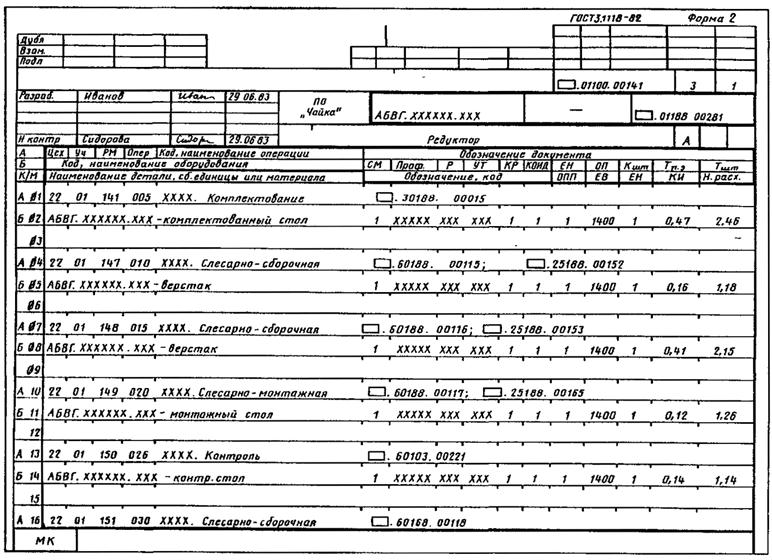 ГОСТ 3.1118-82 Форма 2
Дубл
Взам.
Подл
.01100.00141 3 1
Разраб. Иванов Иван 29.06.83
ПО "Чайка"
АБВГ.XXXXXX.XXX — .01188 00281
Н контр Сидорова Сидор 29.06.83 Редуктор А
А Цех Уч РМ Опер Код, наименование операции Обозначение документа
Б Код, наименование оборудования СМ Проф. Р УТ КР КОИД ЕН ОП Кшт Тп.з Тшт
К/М Наименование детали, сб. единицы или материала Обозначение, код ОПП ЕВ ЕН КИ Н. расх.
А 01 22 01 141 005 XXXX. Комплектование .30188. 00015
Б 02 АБВГ. XXXXXX.XXX - комплектованный стол 1 XXXXX XXX XXX 1 1 1 1400 1 0,47 2,46
03
А 04 22 01 147 010 XXXX. Слесарно-сборочная .60188. 00115; .25188. 00152
Б 05 АБВГ. XXXXXX.XXX - верстак 1 XXXXX XXX XXX 1 1 1 1400 1 0,16 1,18
06
А 07 22 01 148 015 XXXX. Слесарно-сборочная .60188. 00116; .25188. 00153
Б 08 АБВГ. XXXXXX.XXX - верстак 1 XXXXX XXX XXX 1 1 1 1400 1 0,41 2,15
09
А 10 22 01 149 020 XXXX. Слесарно-монтажная .60188. 00117; .25188. 00165
Б 11 АБВГ. XXXXXX.XXX - монтажный стол 1 XXXXX XXX XXX 1 1 1 1400 1 0,12 1,26
12
А 13 22 01 150 026 XXXX. Контроль .60103. 00221
Б 14 АБВГ. XXXXXX.XXX - контр. стол 1 XXXXX XXX XXX 1 1 1 1400 1 0,14 1,14
15
А 16 22 01 151 030 XXXX. Слесарно-сборочная .60168. 00118
МК